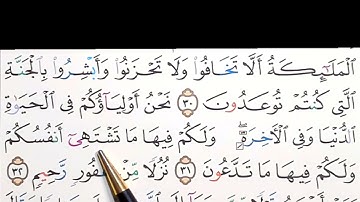 الْمَلَٰٓئِكَةُ أَلَّا تَخَافُوا۟ وَلَا تَحْزَنُوا۟ وَأَبْشِرُوا۟ بِالْجَنَّةِ
الَّتِى كُنتُمْ تُوعَدُونَ ٣٠ نَحْنُ أَوْلِيَآؤُكُمْ فِى الْحَيَوٰةِ
الدُّنْيَا وَفِى الْأَخِرَةِ ۖ وَلَكُمْ فِيهَا مَا تَشْتَهِىٓ أَنفُسُكُمْ
وَلَكُمْ فِيهَا مَا تَدَّعُونَ ٣١ نُزُلًا مِّنْ غَفُورٍ رَّحِيمٍ ٣٢